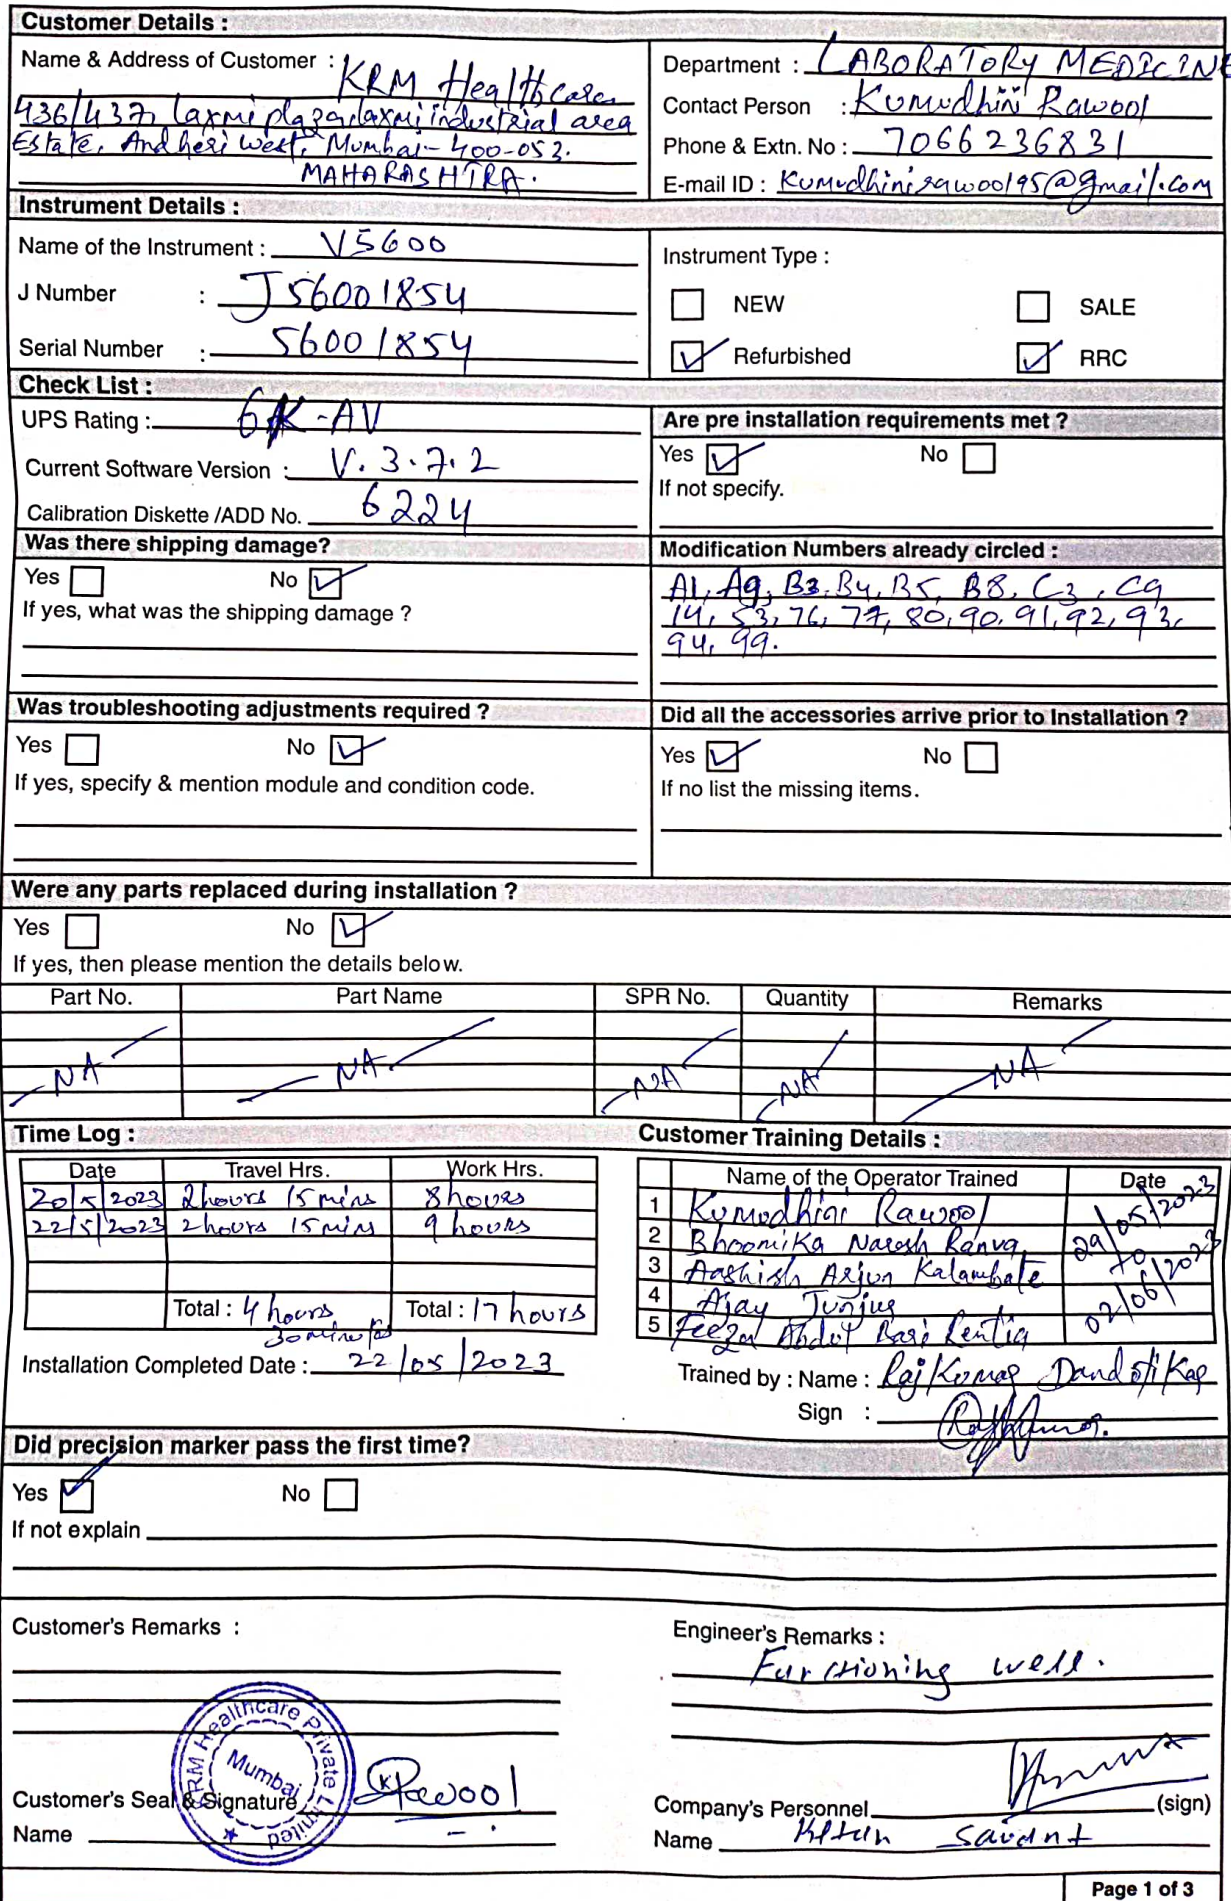 Customer Details :
Name & Address of Customer : KRM Healthcare
436/437, laxmi plaza, laxmi industrial area
Estate, Andheri west, Mumbai - 400-053.
MAHARASHTRA.
Department : LABORATORY MEDICINE
Contact Person : Kumudhini Rawool
Phone & Extn. No : 7066236831
E-mail ID : Kumudhinirawool95@gmail.com
Instrument Details :
Name of the Instrument : V5600
J Number : J56001854
Serial Number : 56001854
Instrument Type :
NEW SALE
Refurbished RRC
Check List :
UPS Rating : 6K-AV
Current Software Version : V.3.7.2
Calibration Diskette /ADD No. 6224
Are pre installation requirements met ?
Yes No
If not specify.
Was there shipping damage?
Yes No
If yes, what was the shipping damage ?
Modification Numbers already circled :
A1, A9, B3, B4, B5, B8, C3, C9
14, 53, 76, 77, 80, 90, 91, 92, 93,
94, 99.
Was troubleshooting adjustments required ?
Yes No
If yes, specify & mention module and condition code.
Did all the accessories arrive prior to Installation ?
Yes No
If no list the missing items.
Were any parts replaced during installation ?
Yes No
If yes, then please mention the details below.
Part No. Part Name SPR No. Quantity Remarks
NA NA NA NA NA
Time Log :
Date Travel Hrs. Work Hrs.
20/5/2023 2hours 15 mins 8hours
22/5/2023 2hours 15 mins 9 hours
Total : 4 hours Total : 17 hours
30 minutes
Installation Completed Date : 22/05/2023
Customer Training Details :
Name of the Operator Trained Date
1 Kumudhini Rawool 29/05/2023
2 Bhoomika Naresh Ranva to
3 Aashish Arjun Kalambate 02/06/2023
4 Ajay
5 Abdul
Trained by : Name : Rajkumar Dandotikar
Sign :
Did precision marker pass the first time?
Yes No
If not explain
Customer's Remarks :
Engineer's Remarks :
Functioning well.
KRM Healthcare Private Limited
Mumbai
Customer's Seal & Signature Rawool
Name
Company's Personnel (sign)
Name Ketan Savant
Page 1 of 3